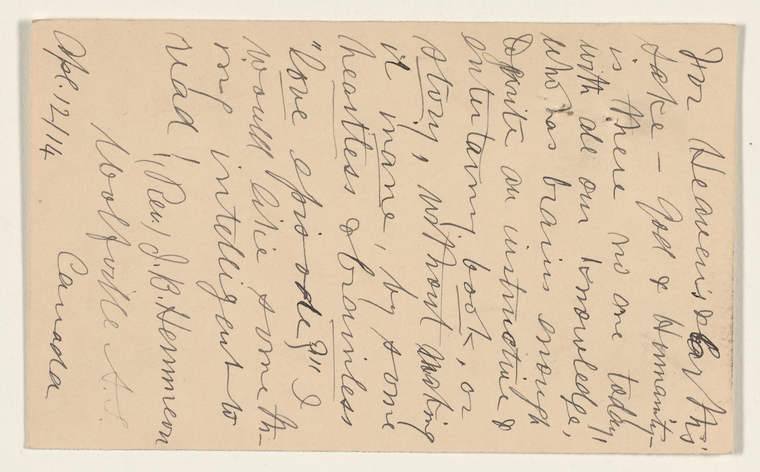 For Heaven's & Earth's
sake — God & Humanity —
is there no one today,
with all our knowledge,
who has brains enough
to write an instructive &
entertaining book, or
story, without making
it inane, by some
heartless & brainless
"love episode?" I
would like someth-
ing intelligent to
read! (Rev) J.B. Hemmeon
Wolfville N.S.
Apl. 12/14 Canada